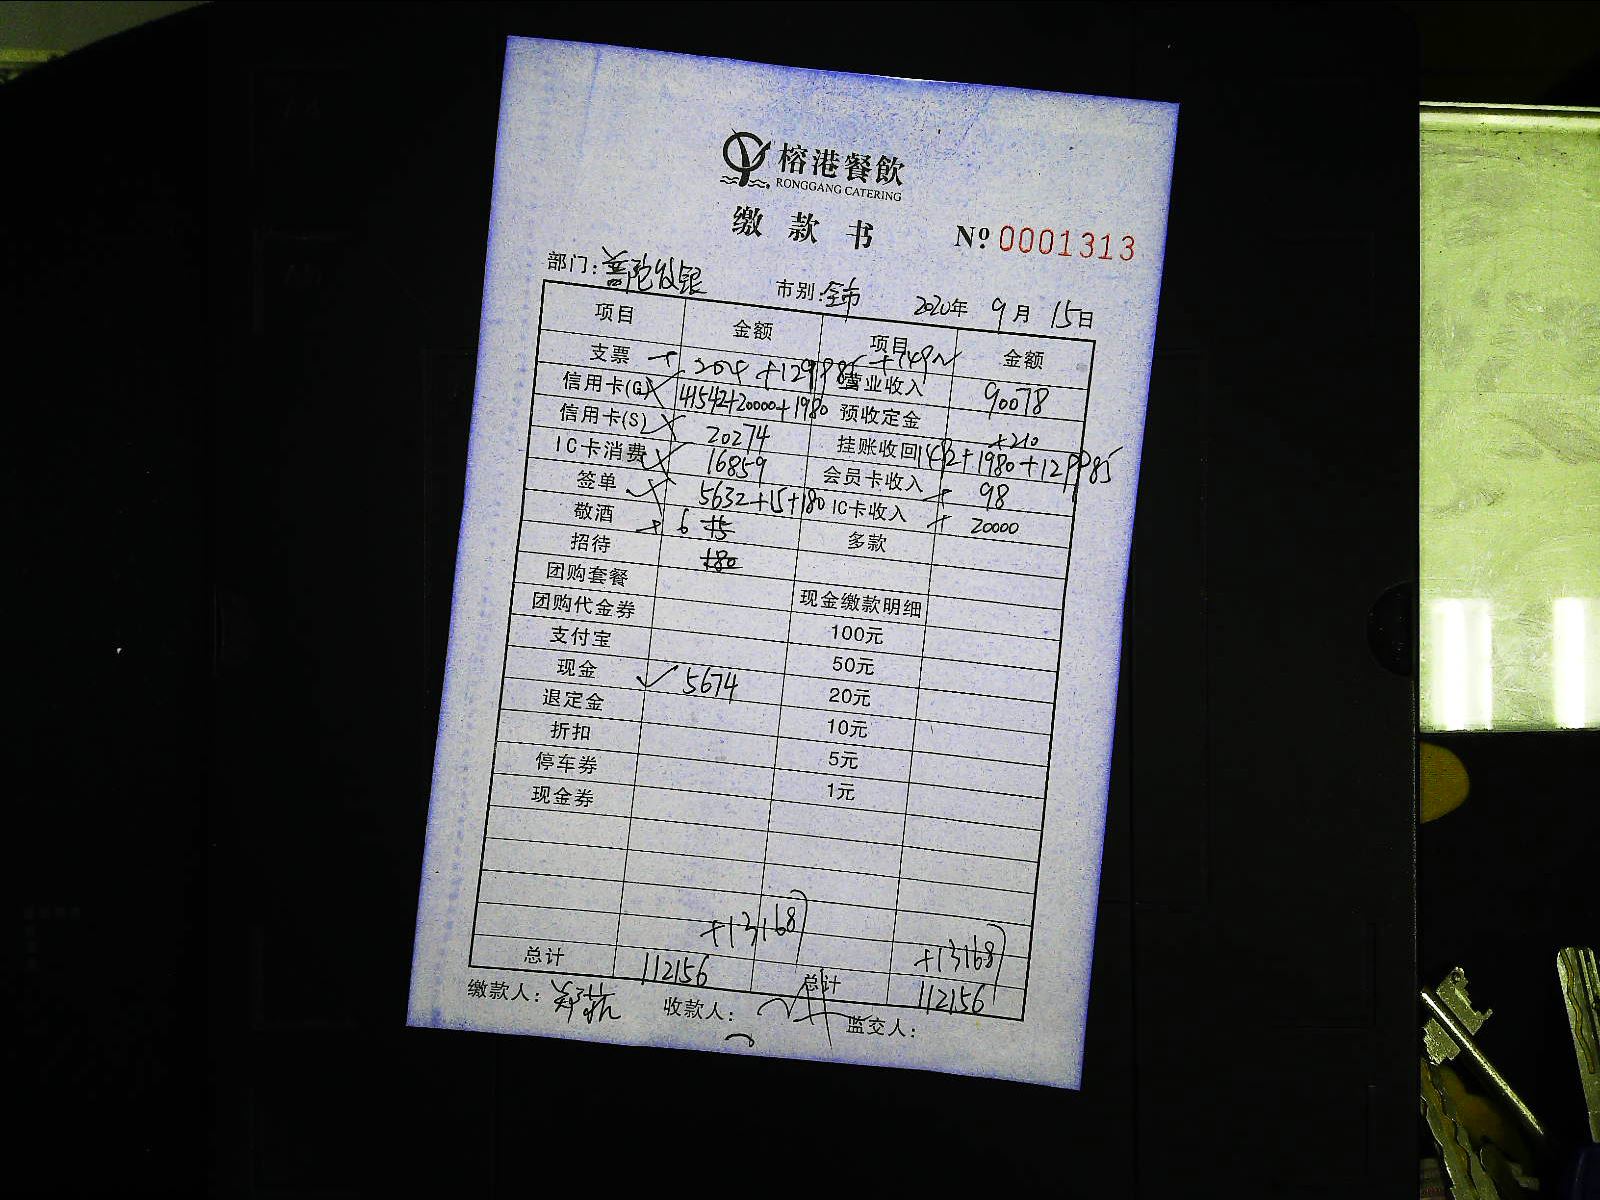 榕港餐飲
RONGGANG CATERING
缴款书 № 0001313
部门:普陀收银 市别:全市 2020年 9月 15日
项目 金额 项目 金额
支票 204 +129985 营业收入 90078
信用卡(G) 41542+20000+1980 预收定金 +210
信用卡(S) 20274 挂账收回 1492+1980+129985
IC卡消费 16859 会员卡收入 98
签单 5632+15+180 IC卡收入 20000
敬酒 6 +15 多款
招待 +80
团购套餐 现金缴款明细
团购代金券 100元
支付宝 50元
现金 5674 20元
退定金 10元
折扣 5元
停车券 1元
现金券
+13168 +13168
总计 112156 总计 112156
缴款人: 收款人: 监交人: